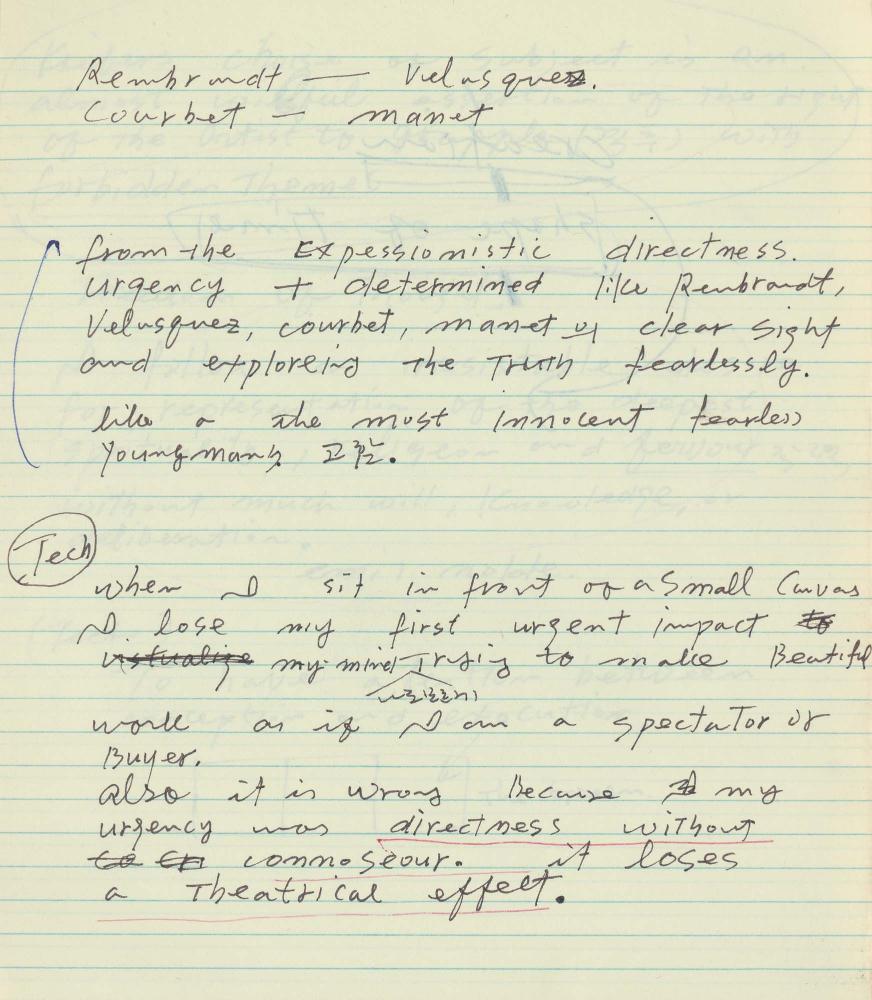 Rembrandt — Velasquez.
Courbet — manet
from the Expessionistic directness.
urgency + determined like Rembrandt,
Velasquez, courbet, manet의 clear sight
and exploreing the Truth fearlessly.
like a the most innocent fearless
youngman's 고함.
Tech
when I sit in front of a small Canvas
I lose my first urgent impact to
vistualize my mind Trying to make Beautiful
work as if I am a spectator or
Buyer.
also it is wrong Because my
urgency was directness without
connoseour. it loses
a Theatrical effect.